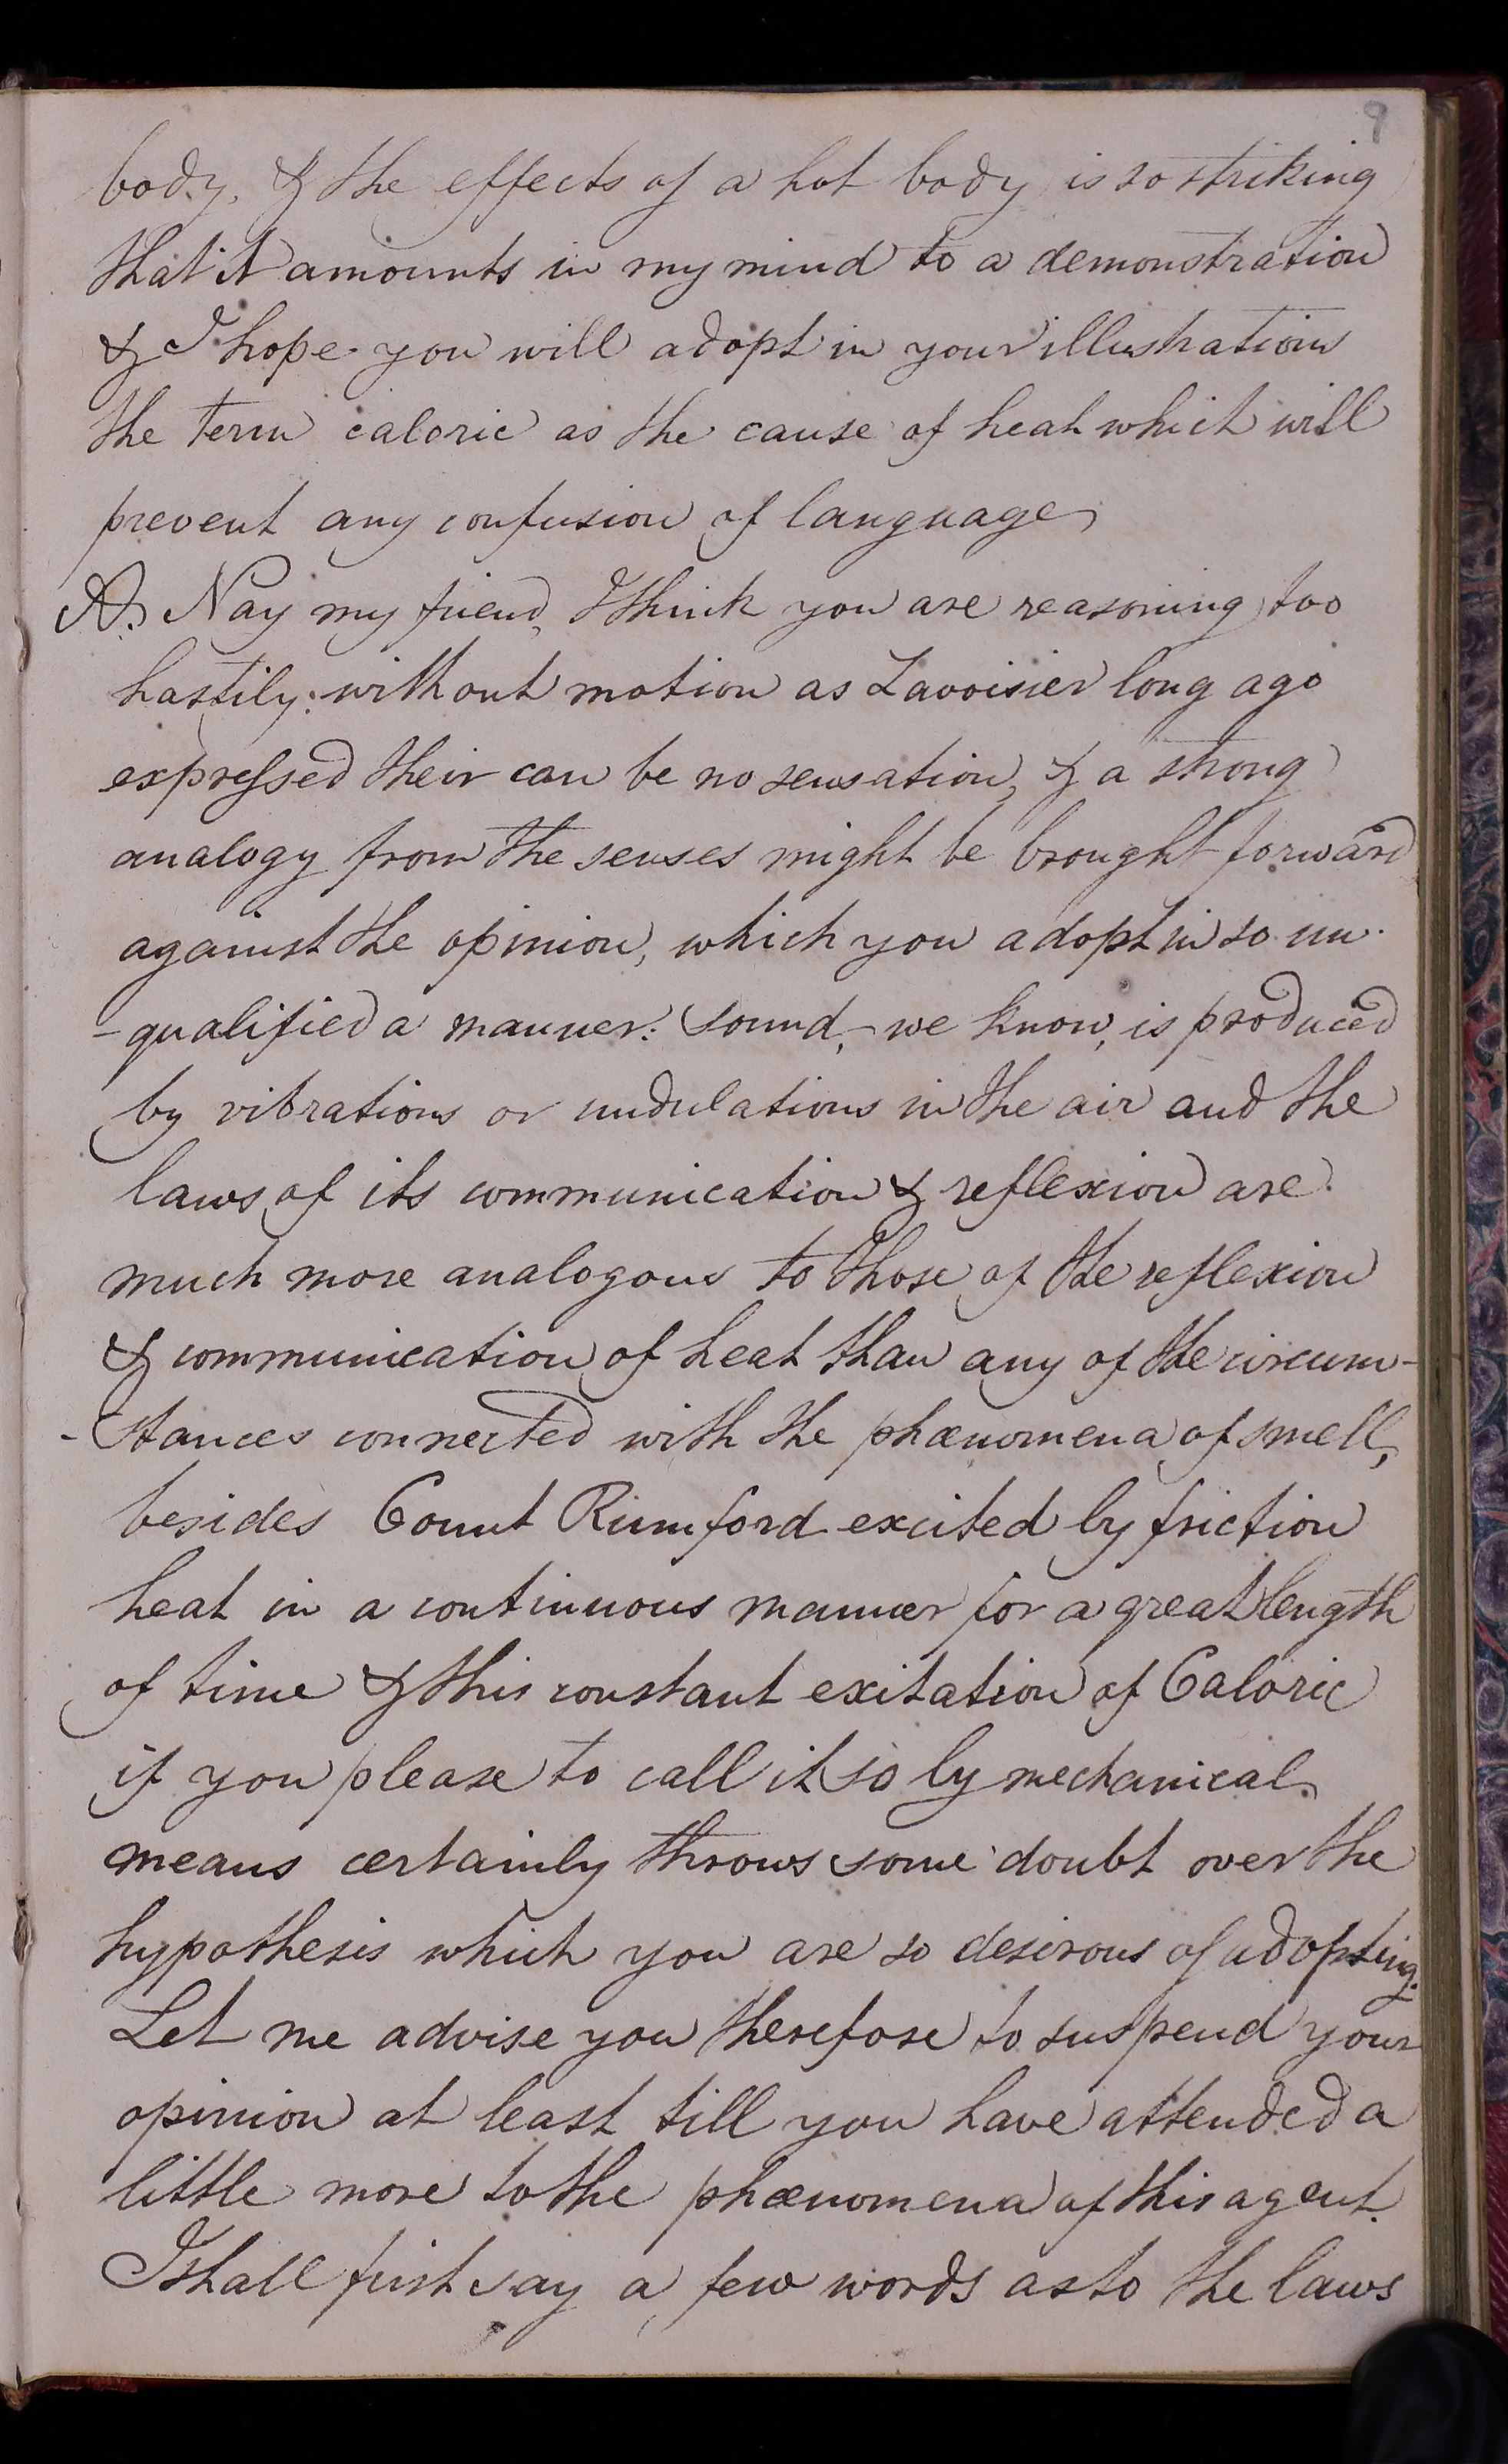 9
body, & the effects of a hot body is so striking
that it amounts in my mind to a demonstration
& I hope you will adopt in your illustrations
the term caloric as the cause of heat which will
prevent any confusion of language
A. Nay my friend, I think you are reasoning too
hastily: without motion as Lavoisier long ago
expressed their can be no sensation, & a strong
analogy from the senses might be brought forward
against the opinion, which you adopt in so un-
-qualified a manner: Sound, - we know, is produced
by vibrations or undulations in the air and the
laws of its communication & reflexion are
much more analogous to those of the reflexion
& communication of heat than any of the circum-
-stances connected with the phœnomena of smell,
besides Count Rumford excited by friction
heat in a continuous manner for a great length
of time & this constant exitation of Caloric
if you please to call it so by mechanical
means certainly throws some doubt over the
hypothesis which you are so desirous of adopting.
Let me advise you therefore to suspend your
opinion at least till you have attended a
little more to the phœnomena of this agent.
I shall first say a few words as to the laws